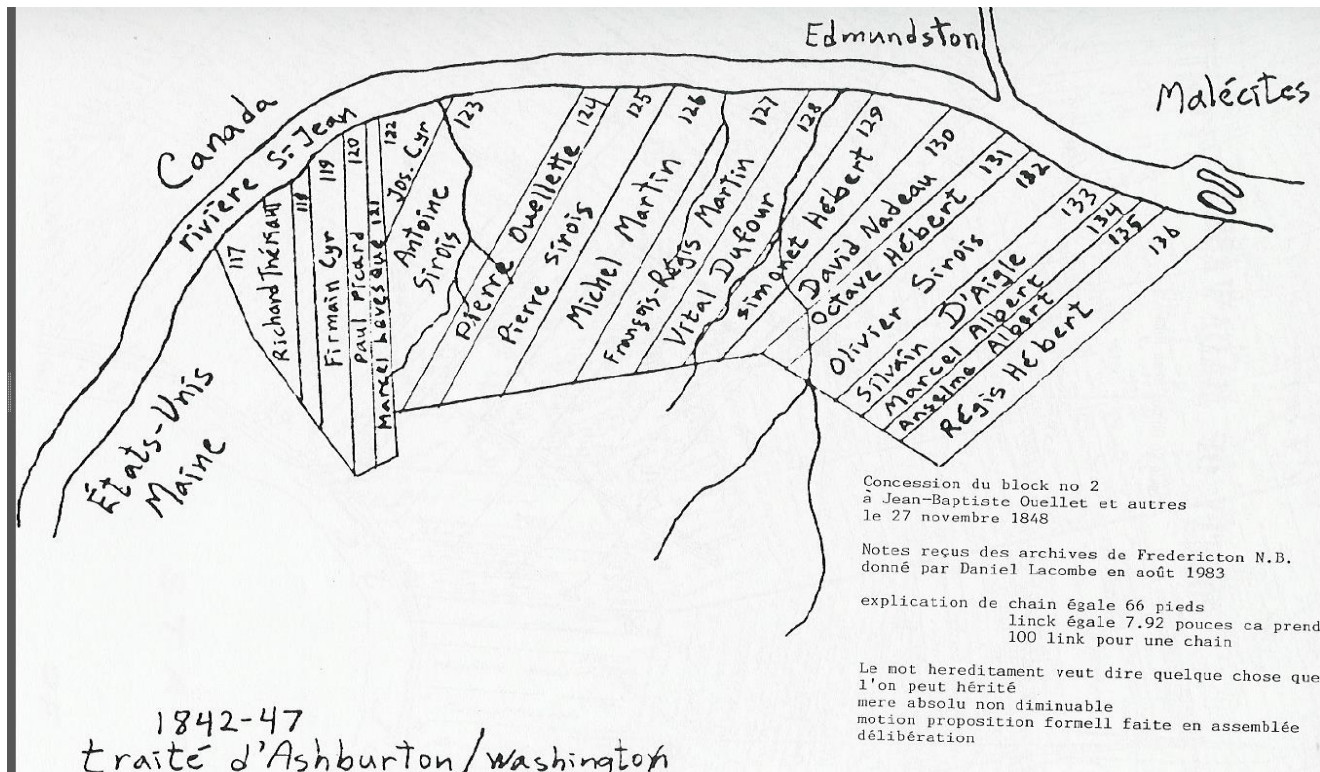 Edmundston
Malécites
Canada
rivière St-Jean
États-Unis
Maine
117
Richard Thériault
118
119
Firmain Cyr
120
Paul Picard
Marcel Lavesque 121
122
Jos. Cyr
123
Antoine
Sirois
Pierre Ouellette 124
125
Pierre Sirois
126
Michel Martin
127
François-Régis Martin
128
Vital Dufour
129
Simonet Hébert
130
David Nadeau
131
Octave Hébert
132
Olivier Sirois
133
Silvain D'Aigle
134
Marcel Albert
135
Anselme Albert
136
Régis Hébert
Concession du block no 2
à Jean-Baptiste Ouellet et autres
le 27 novembre 1848
Notes reçus des archives de Fredericton N.B.
donné par Daniel Lacombe en août 1983
explication de chain égale 66 pieds
linck égale 7.92 pouces ca prend
100 link pour une chain
Le mot hereditament veut dire quelque chose que
l'on peut hérité
mere absolu non diminuable
motion proposition formell faite en assemblée
délibération
1842-47
traité d'Ashburton/Washington